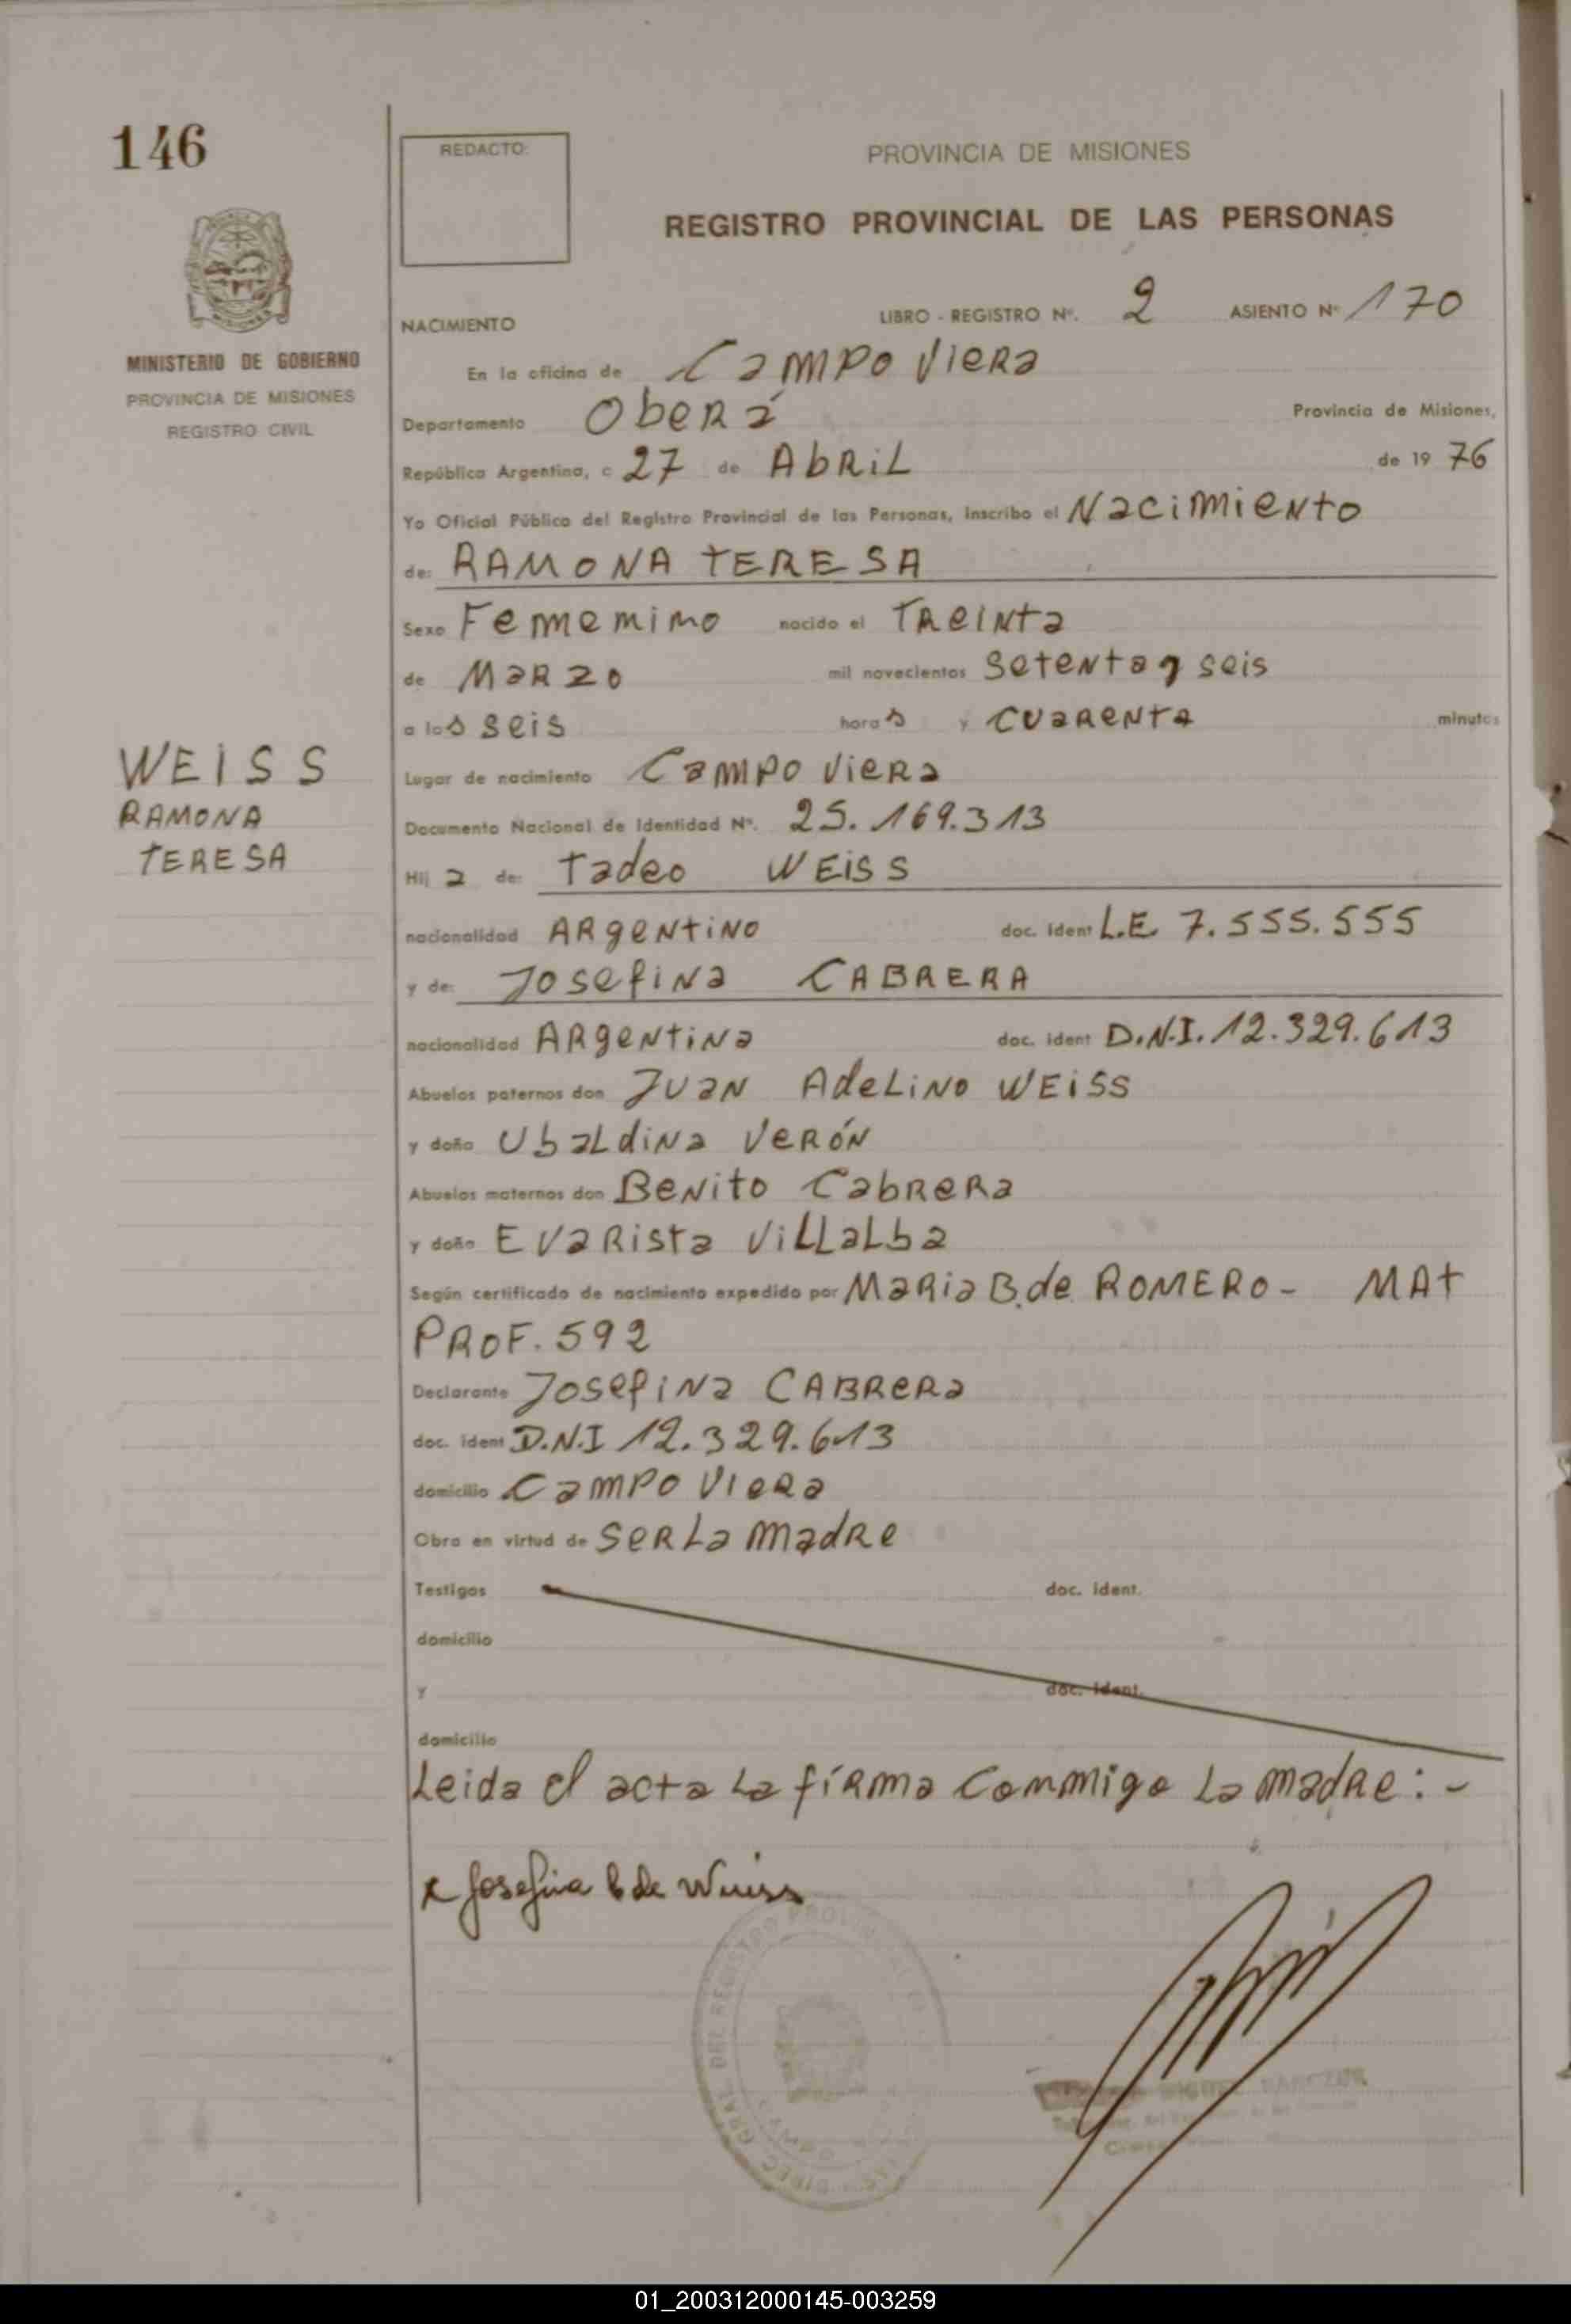 146
REDACTO:
PROVINCIA DE MISIONES
REGISTRO PROVINCIAL DE LAS PERSONAS
MINISTERIO DE GOBIERNO
PROVINCIA DE MISIONES
REGISTRO CIVIL
NACIMIENTO LIBRO - REGISTRO Nº. 2 ASIENTO Nº 170
En la oficina de Campo Viera
Departamento Oberá Provincia de Misiones,
República Argentina, a 27 de Abril de 19 76
Yo Oficial Público del Registro Provincial de las Personas, inscribo el Nacimiento
de: RAMONA TERESA
Sexo Femenino nacido el Treinta
de Marzo mil novecientos Setenta y seis
a las seis horas y cuarenta minutos
WEISS
RAMONA
TERESA
Lugar de nacimiento Campo Viera
Documento Nacional de Identidad Nº. 25.169.313
Hija de: Tadeo WEISS
nacionalidad Argentino doc. ident L.E. 7.555.555
y de: Josefina CABRERA
nacionalidad Argentina doc. ident D.N.I. 12.329.613
Abuelos paternos don Juan Adelino WEISS
y doña Ubaldina Verón
Abuelos maternos don Benito Cabrera
y doña Evarista Villalba
Según certificado de nacimiento expedido por Maria B. de ROMERO - MAT
PROF. 592
Declarante Josefina CABRERA
doc. ident D.N.I 12.329.613
domicilio Campo Viera
Obra en virtud de ser La madre
Testigos doc. ident.
domicilio
y doc. ident.
domicilio
Leida el acta La firma conmigo La madre: -
x Josefina C de Weiss
01_200312000145-003259